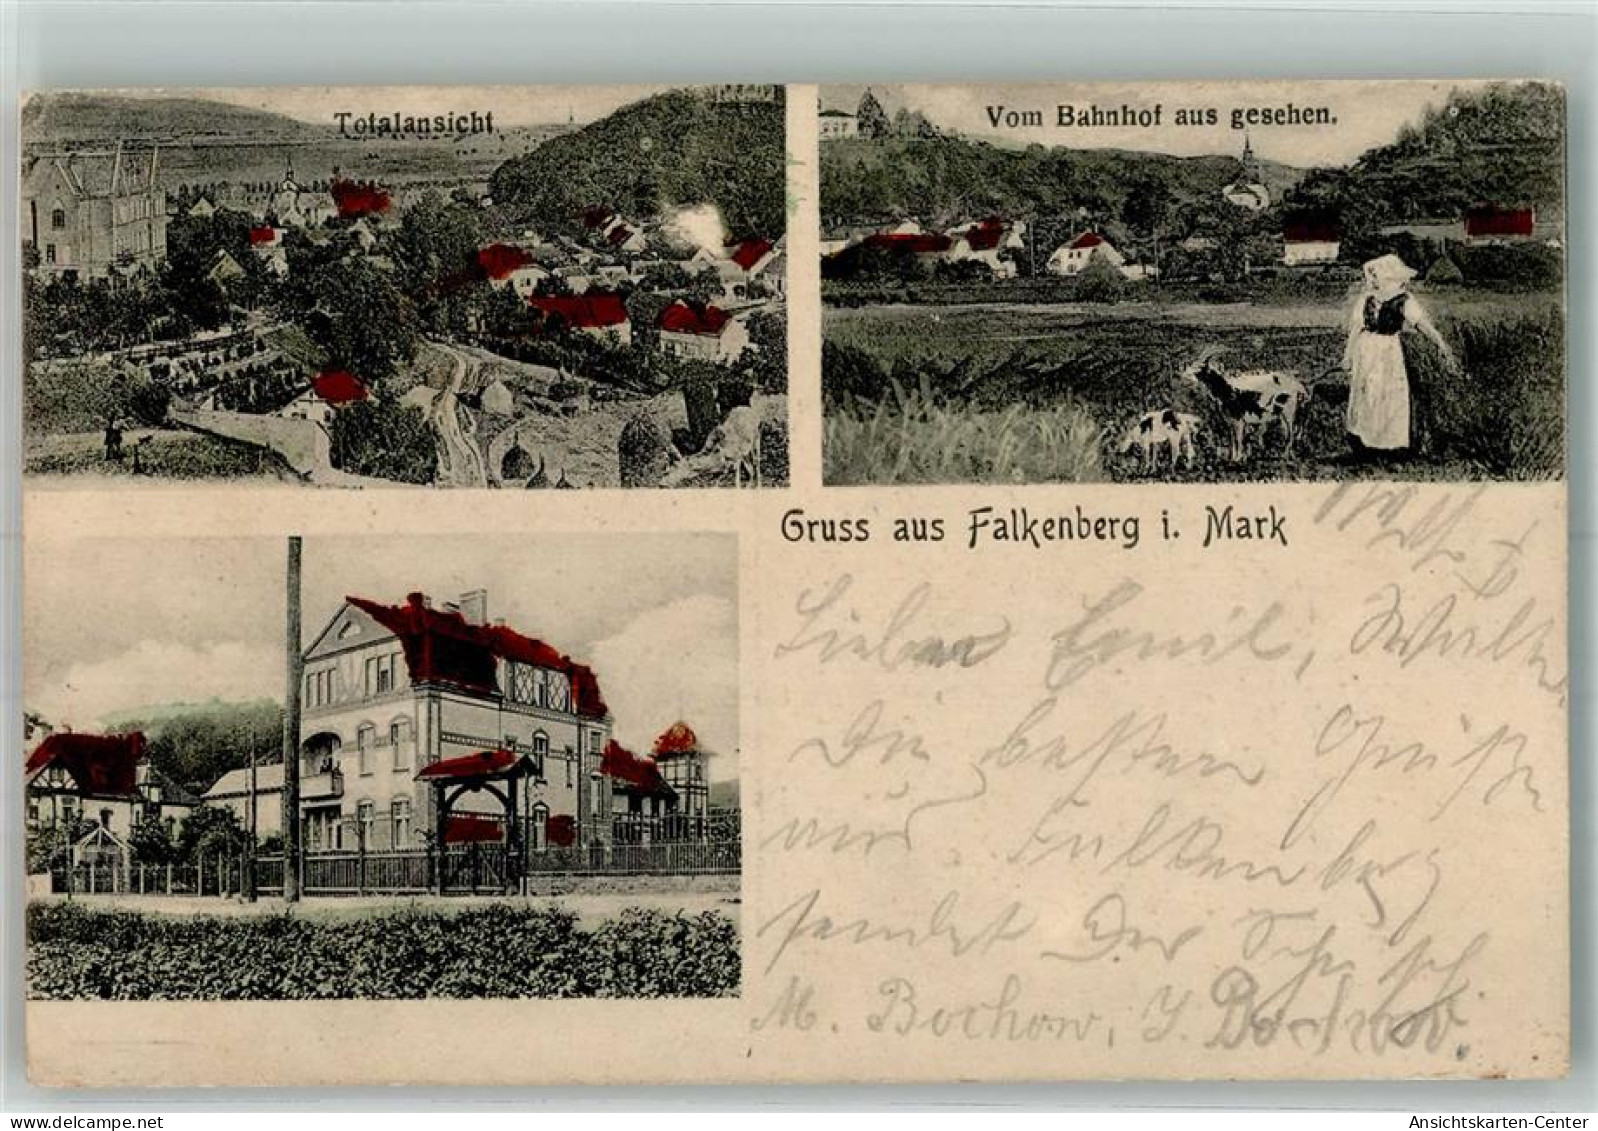 Totalansicht
Vom Bahnhof aus gesehen.
Gruss aus Falkenberg i. Mark
Lieber Emil,
Die besten Grüße
aus Falkenberg
sendet Der
M. Bochow, J. Bochow.
delcampe.net
Ansichtskarten-Center